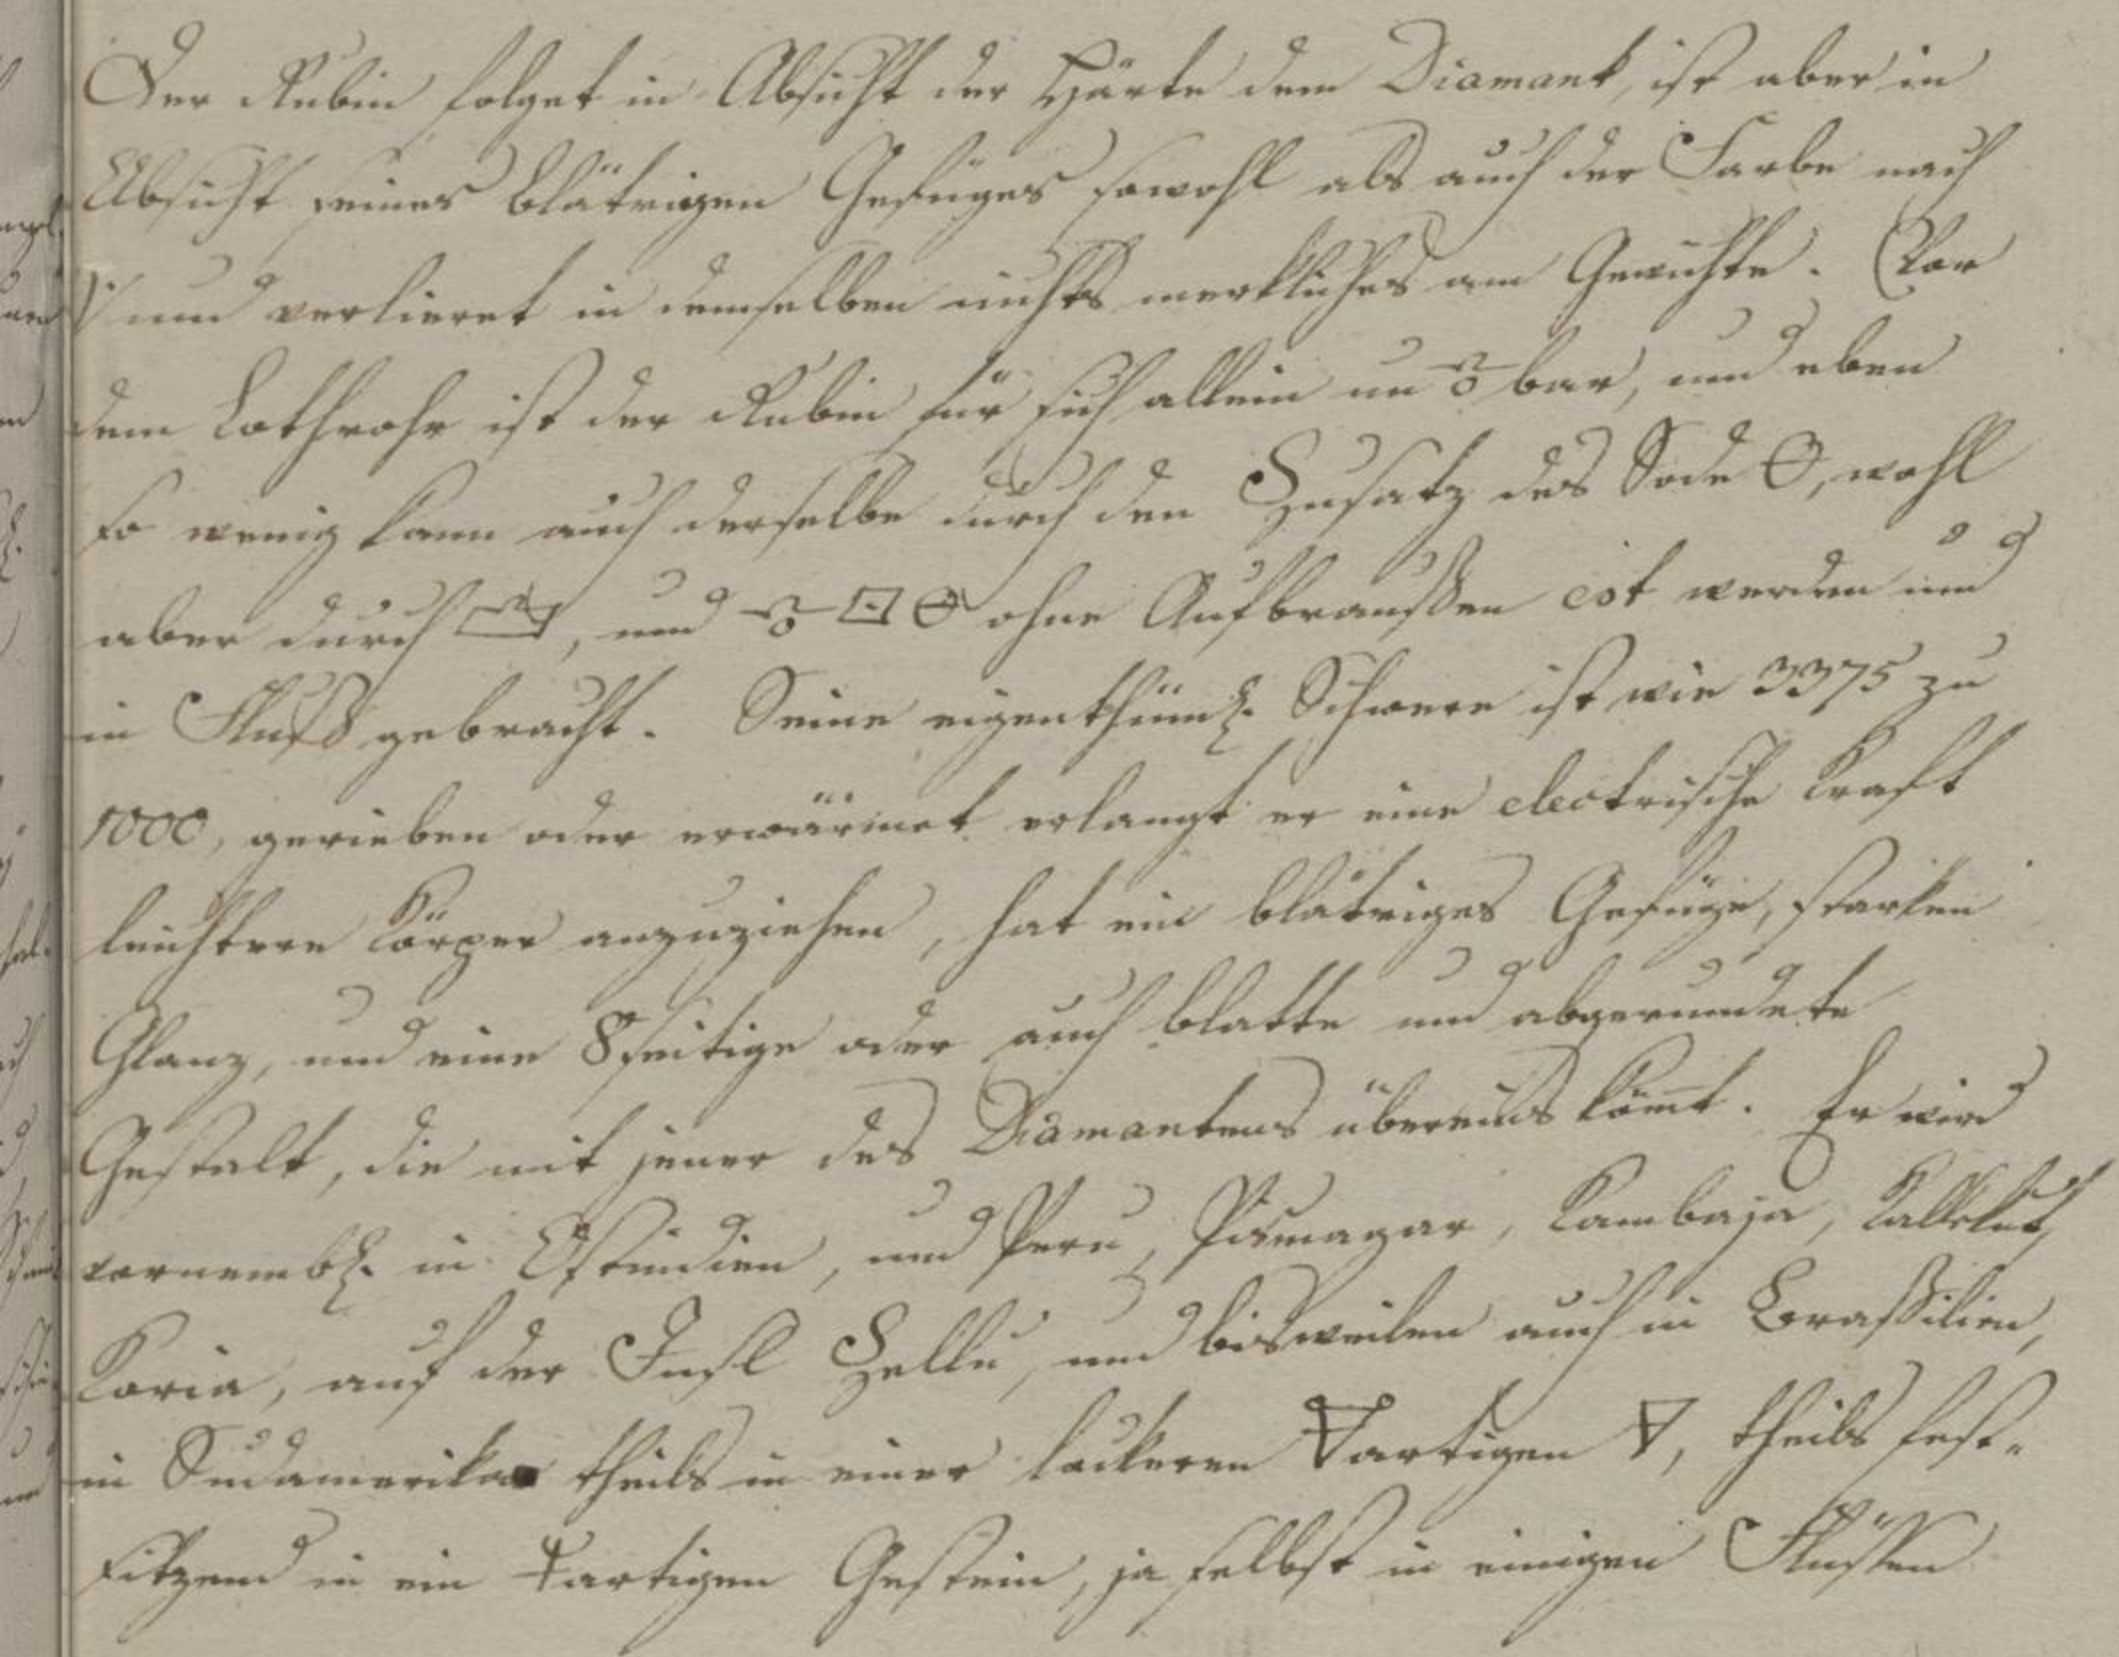 Der Rubin folget in Absicht der Härte dem Diamant, ist aber in
Absicht seines blätrigen Gefüges sowohl als auch der Farbe nach
und verlieret in demselben nichts merkliches am Gewichte. Vor
dem Lothrohr ist der Rubin für sich allein un bar, und eben
so wenig kann auch derselbe durch den Zusatz des Sode 🜔, wohl
aber durch , und ohne Aufbraußen werden und
in Fluß gebracht. Seine eigenthüml. Schwere ist wie 3375 zu
1000, gerieben oder erwärmet erlangt er eine electrische Kraft
leichtere Körper anzuziehen, hat ein blätriges Gefüge, starken
Glanz, und eine 8seitige oder auch blatte und abgerundete
Gestalt, die mit jener des Diamantens übereins kömt. Er wird
vornembl. in Ostindien, und Peru, Kambaja,
Koria, auf der Insl Zellu, und bisweilen auch in Braßilien,
in Sudamerika theils in einer lockeren artigen 🜃, theils fest-
sitzend in ein artigen Gestein, ja selbst in einigen Flüssen